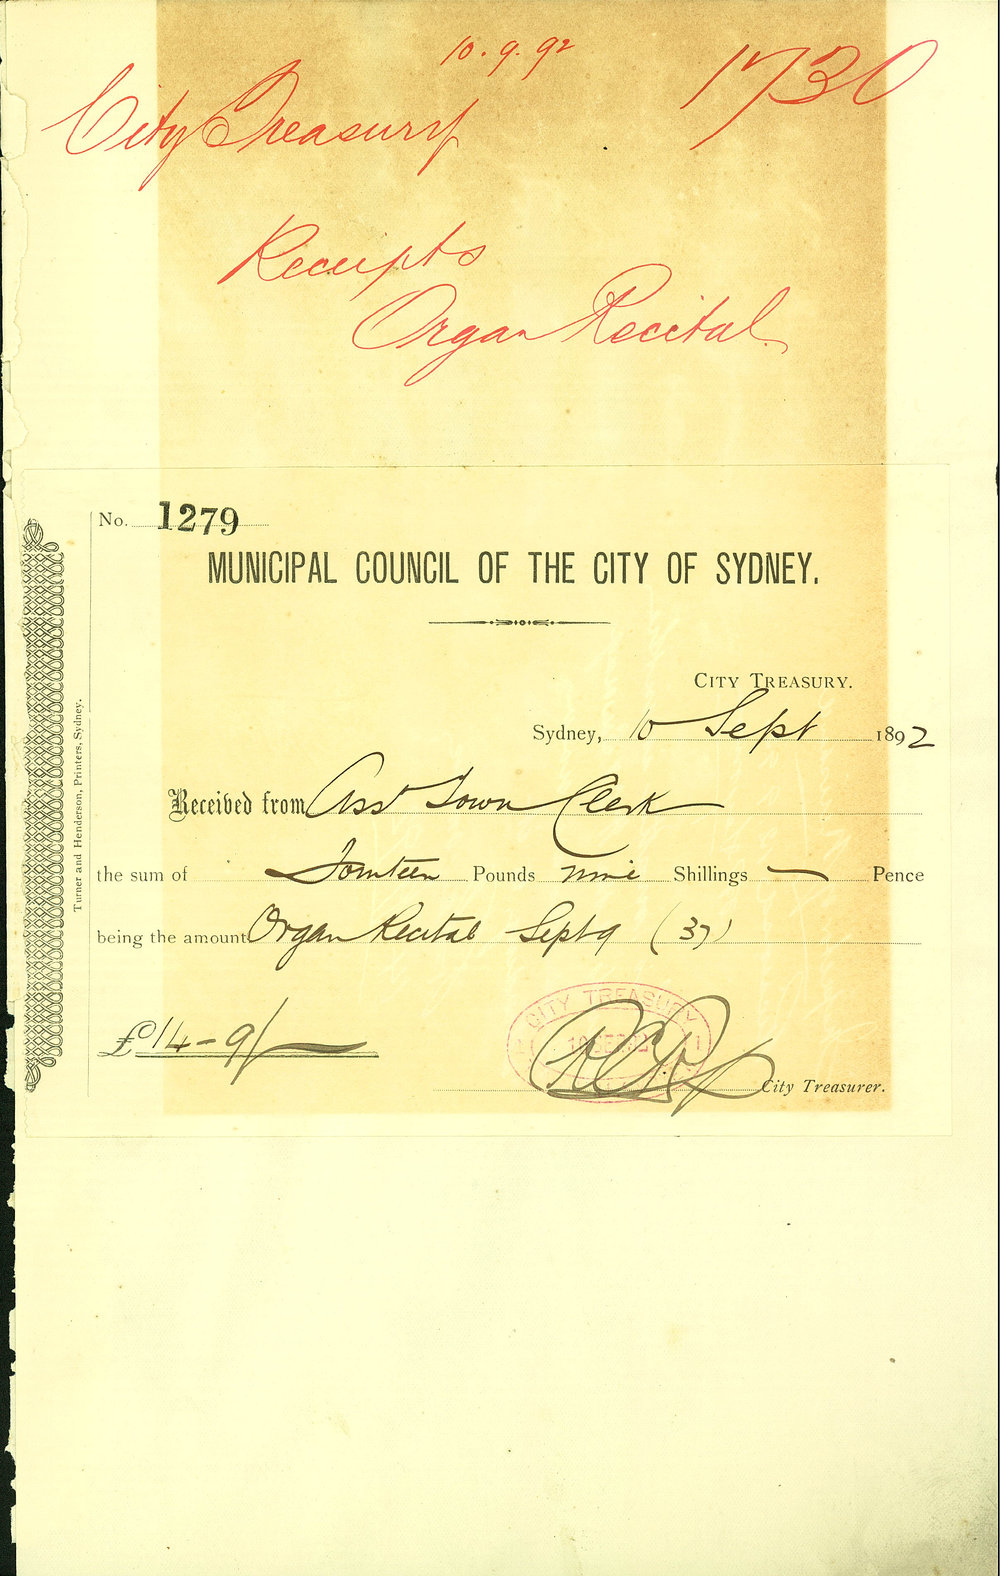 10.9.92
1730
City Treasury
Receipts
Organ Recital
No. 1279
MUNICIPAL COUNCIL OF THE CITY OF SYDNEY.
CITY TREASURY.
Sydney, 10 Sept 1892
Received from Asst Town Clerk
the sum of Fourteen Pounds nine Shillings — Pence
being the amount Organ Recital Sept 9 (37)
£14-9/—
CITY TREASURY
City Treasurer.
Turner and Henderson, Printers, Sydney.